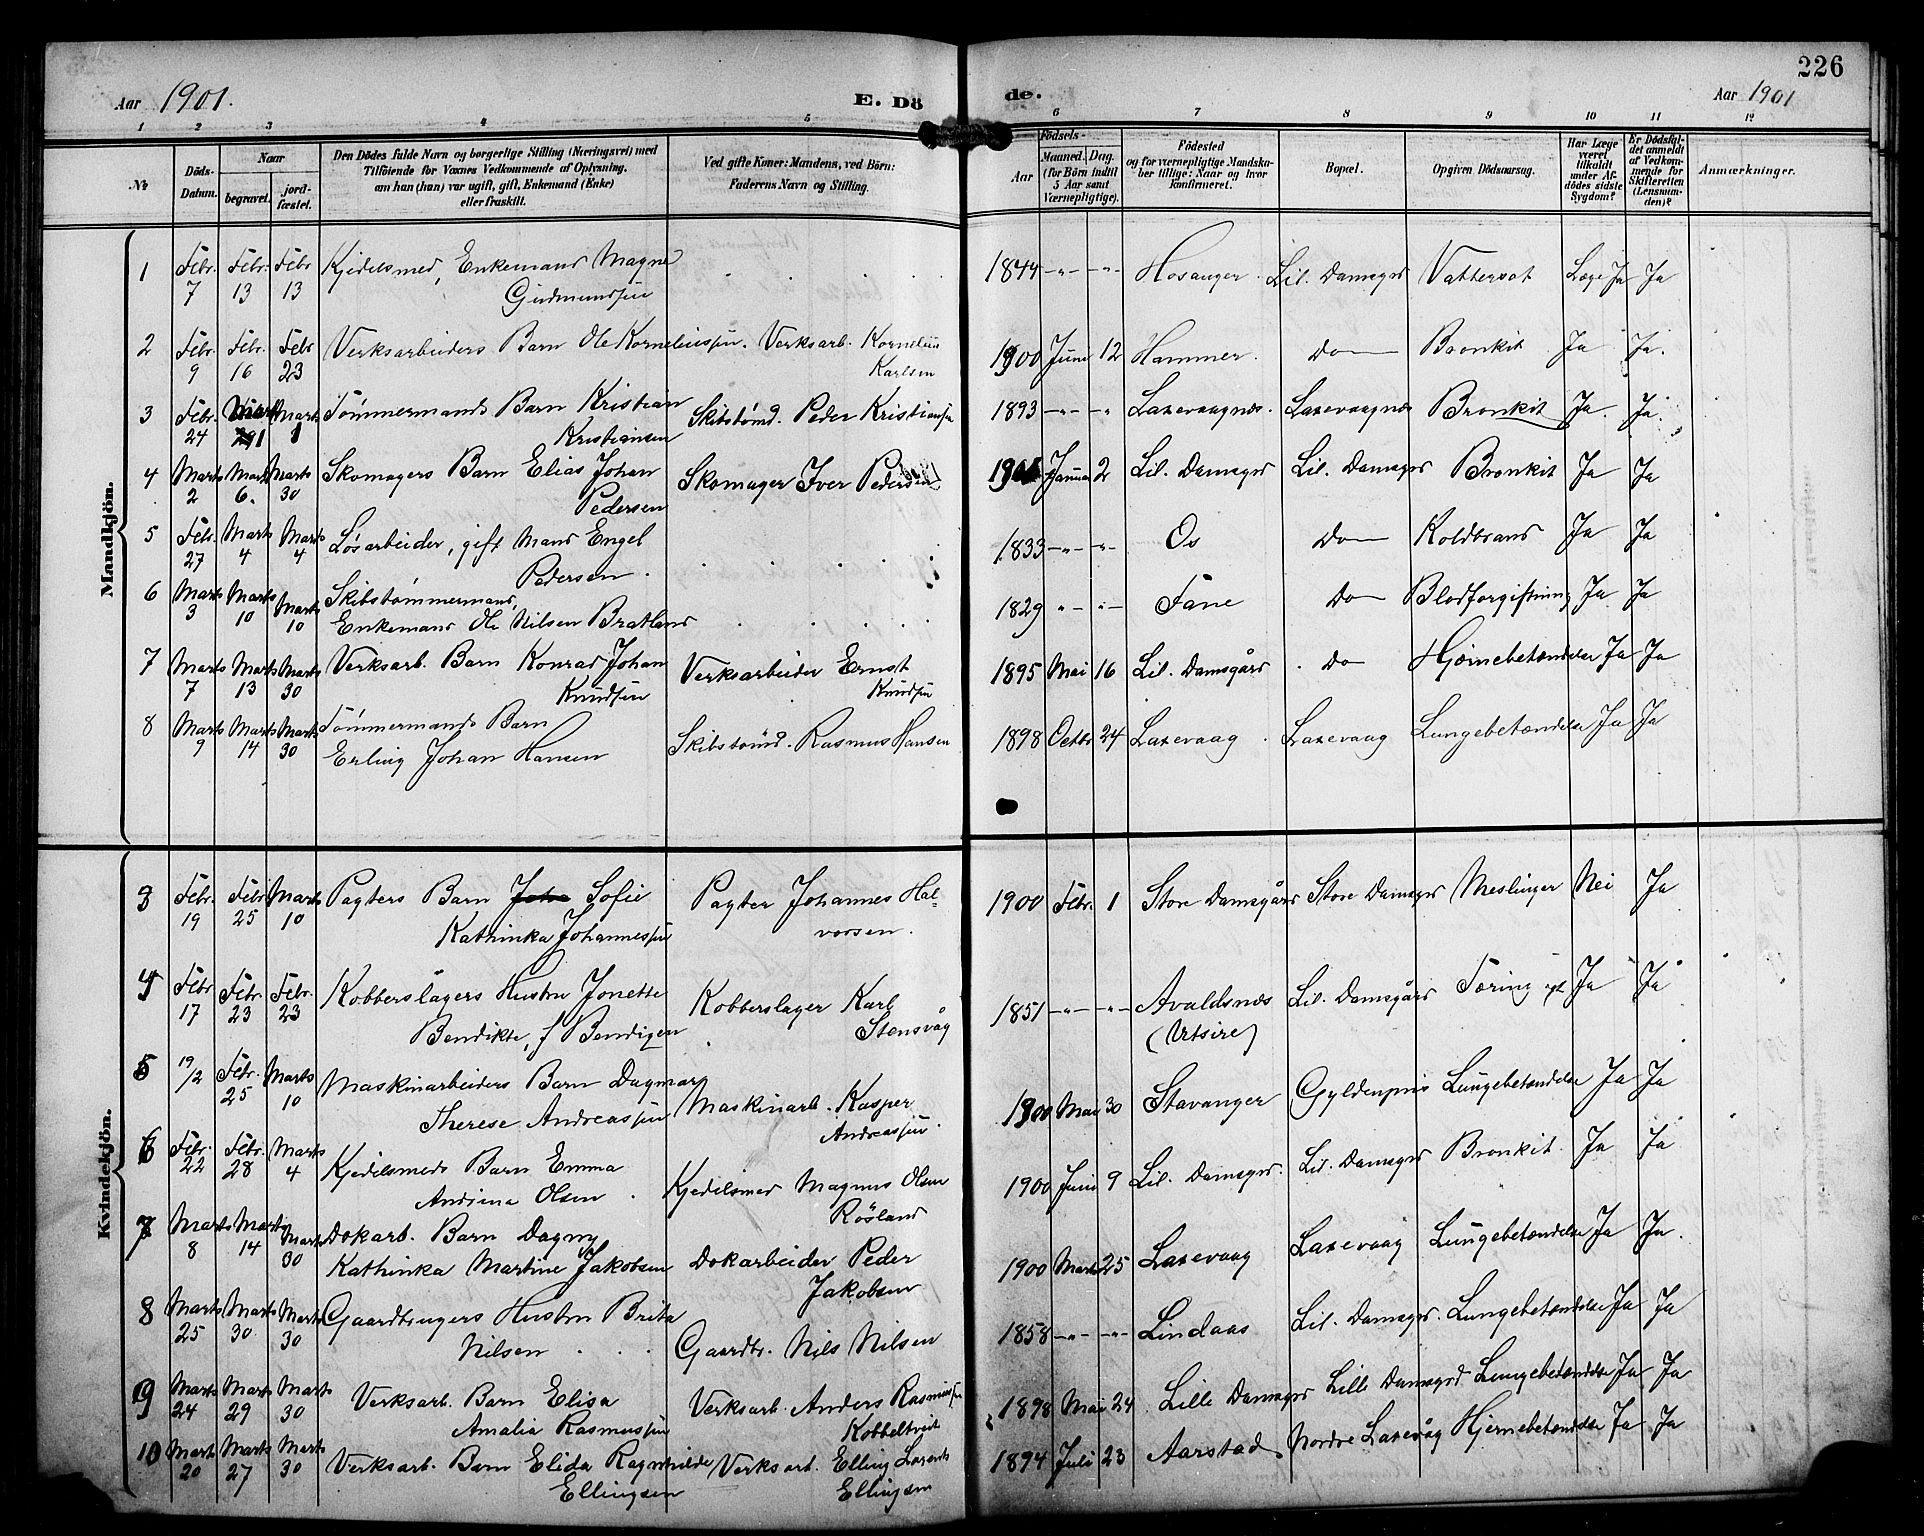 226
Aar 1901.
E. Dö
de.
Aar 1901
1 2 3 4 5 6 7 8 9 10 11 12
No
Döds-
Datum.
Naar
begravet.
jord-
fæstet.
Den Dödes fulde Navn og borgerlige Stilling (Næringsvei) med
Tilföiende for Voxnes Vedkommende af Oplysning,
om han (hun) var ugift, gift, Enkemand (Enke)
eller fraskilt.
Ved gifte Koner: Mandens, ved Börn:
Faderens Navn og Stilling.
Födsels-
Aar
Maaned. Dag.
(for Börn indtil
5 Aar samt
Værnepligtige).
Födested
og for værnepligtige Mandska-
ber tillige: Naar og hvor
konfirmeret.
Bopæl.
Opgiven Dödsaarsag.
Har Læge
været
tilkaldt
under Af-
dödes sidste
Sygdom?
Er Dödsfal-
det anmeldt
af Vedkom-
mende for
Skifteretten
(Lensman-
den)?
Anmærkninger.
Mandkjön.
1 Febr. 7 Febr. 13 Febr 13 Kjedelsmed, Enkemand Magne 1844 -"- "- Hosanger Lil. Damsgrd Vattersot Læge Ja Ja
Gudmundsen
2 Febr. 9 Febr. 16 Febr 23 Verksarbeiders Barn Ole Korneliussen. Verksarb. Kornelius 1900 Juni 12 Hammer. Do Bronkit Ja Ja.
Karlsen
3 Febr. 24 Marts 1 Marts 1 Tömmermands Barn Kristian Skibstömd. Peder Kristiansen 1893 -"- " Laxevaagnes. Laxevaagnes Bronkit Ja Ja.
Kristiansen
4 Marts 2 Marts 6. Marts 30 Skomagers Barn Elias Johan Skomager Iver Pedersen 1901 Januar 2 Lil. Damsgrd Lil. Damsgrd Bronkit Ja Ja
Pedersen
5 Febr. 27 Marts 4 Marts 4 Løsarbeider, gift Mand Engel 1833 -"- "- Os Do Koldbrand Ja Ja
Pedersen.
6 Marts 3 Marts 10 Marts 10 Skibstömmermand, 1829 -"- "- Fane Do Blodforgiftning Ja Ja
Enkemand Ole Nilsen Bratland
7 Marts 7 Marts 13 Marts 30 Verksarb. Barn Konrad Johan Verksarbeider Ernst 1895 Mai 16 Lil. Damsgård Do Hjernebetændelse Ja Ja
Knudsen Knudsen
8 Marts 9 Marts 14 Marts 30 Tömmermands Barn Skibstömd. Rasmus Hansen 1898 Octbr 24 Laxevaag. Laxevaag Lungebetændelse Ja Ja
Erling Johan Hansen
Kvindekjön.
3 Febr. 19 Febr 25 Marts 10 Pagters Barn Joha Sofie Pagter Johannes Hal- 1900 Febr. 1 Store Damsgård Store Damsgrd Meslinger Nei Ja
Kathinka Johannessen vorsen.
4 Febr 17 Febr. 23 Febr. 23 Kobberslagers Hustru Jonette Kobberslager Karl 1851 -"- "- Avaldsnes Lil. Damsgård Tæring Ja Ja
Bendikte, f Bendigen Stensvåg (Utsire)
5 19/2 Febr. 25 Marts 10 Maskinarbeiders Barn Dagmar Maskinarb. Kasper 1900 Mai 30 Stavanger Gyldenpris Lungebetændelse Ja Ja
Therese Andreassen Andreassen.
6 Febr. 22 Febr. 28 Marts 4 Kjedelsmeds Barn Emma Kjedelsmed Magnus Olsen 1900 Juni 9 Lil. Damsgrd. Lil. Damsgrd Bronkit. Ja Ja
Andrina Olsen. Rösland
7 Marts 8 Marts 14 Marts 30 Dokarb. Barn Dagny Dokarbeider Peder 1900 Marts 25 Laxevaag Laxevaag Lungebetændelse Ja Ja.
Kathinka Martine Jakobsen Jakobsen
8 Marts 25 Marts 30 Marts 30 Gaardbrugers Hustru Brita Gaardbr. Nils Nilsen 1858 -"- -"- Lindaas Lil. Damsgrd. Lungebetændelse Ja Ja
Nilsen
9 Marts 24 Marts 29 Marts 30 Verksarb. Barn Elisa Verksarb. Anders Rasmussen 1898 Mai 24 Lille Damsgrd Lille Damsgrd Lungebetændelse Ja Ja
Amalia Rasmussen Kobbeltveit
10 Marts 20 Marts 27 Marts 30 Verksarb. Barn Elida Ragnhilde Verksarb. Elling 1894 Juli 23 Aarstad Nordre Laxevåg Hjernebetændelse Ja Ja
Ellingsen Ellingsen